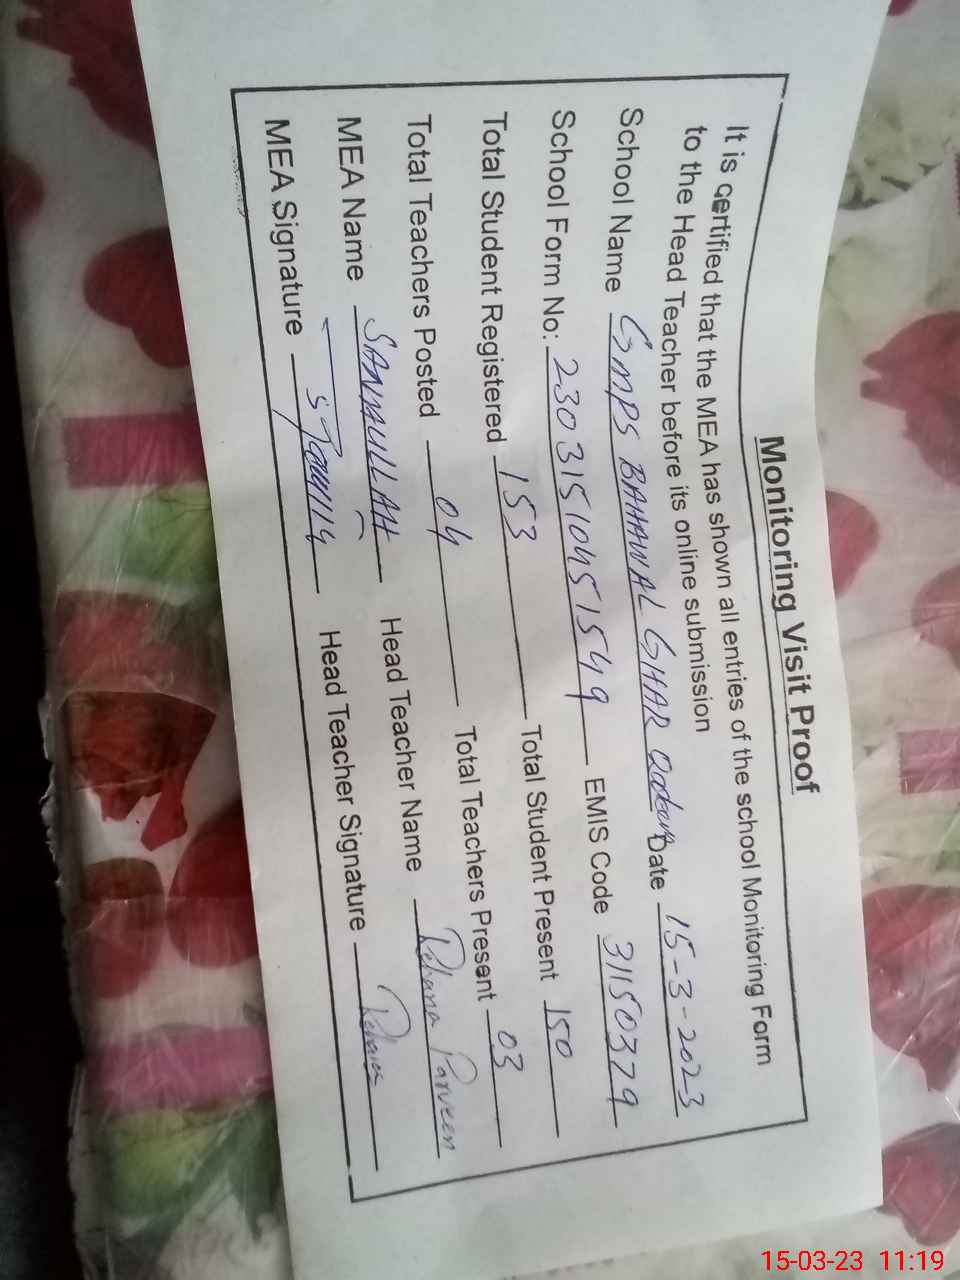 Monitoring Visit Proof
It is certified that the MEA has shown all entries of the school Monitoring Form
to the Head Teacher before its online submission
School Name GMPS BAHAWAL GHAR Date 15-3-2023
School Form No: 23031510451549 EMIS Code 31150379
Total Student Registered 153 Total Student Present 150
Total Teachers Posted 04 Total Teachers Present 03
MEA Name SANAULLAH Head Teacher Name Rehana Parveen
MEA Signature Head Teacher Signature Rehana
15-03-23 11:19